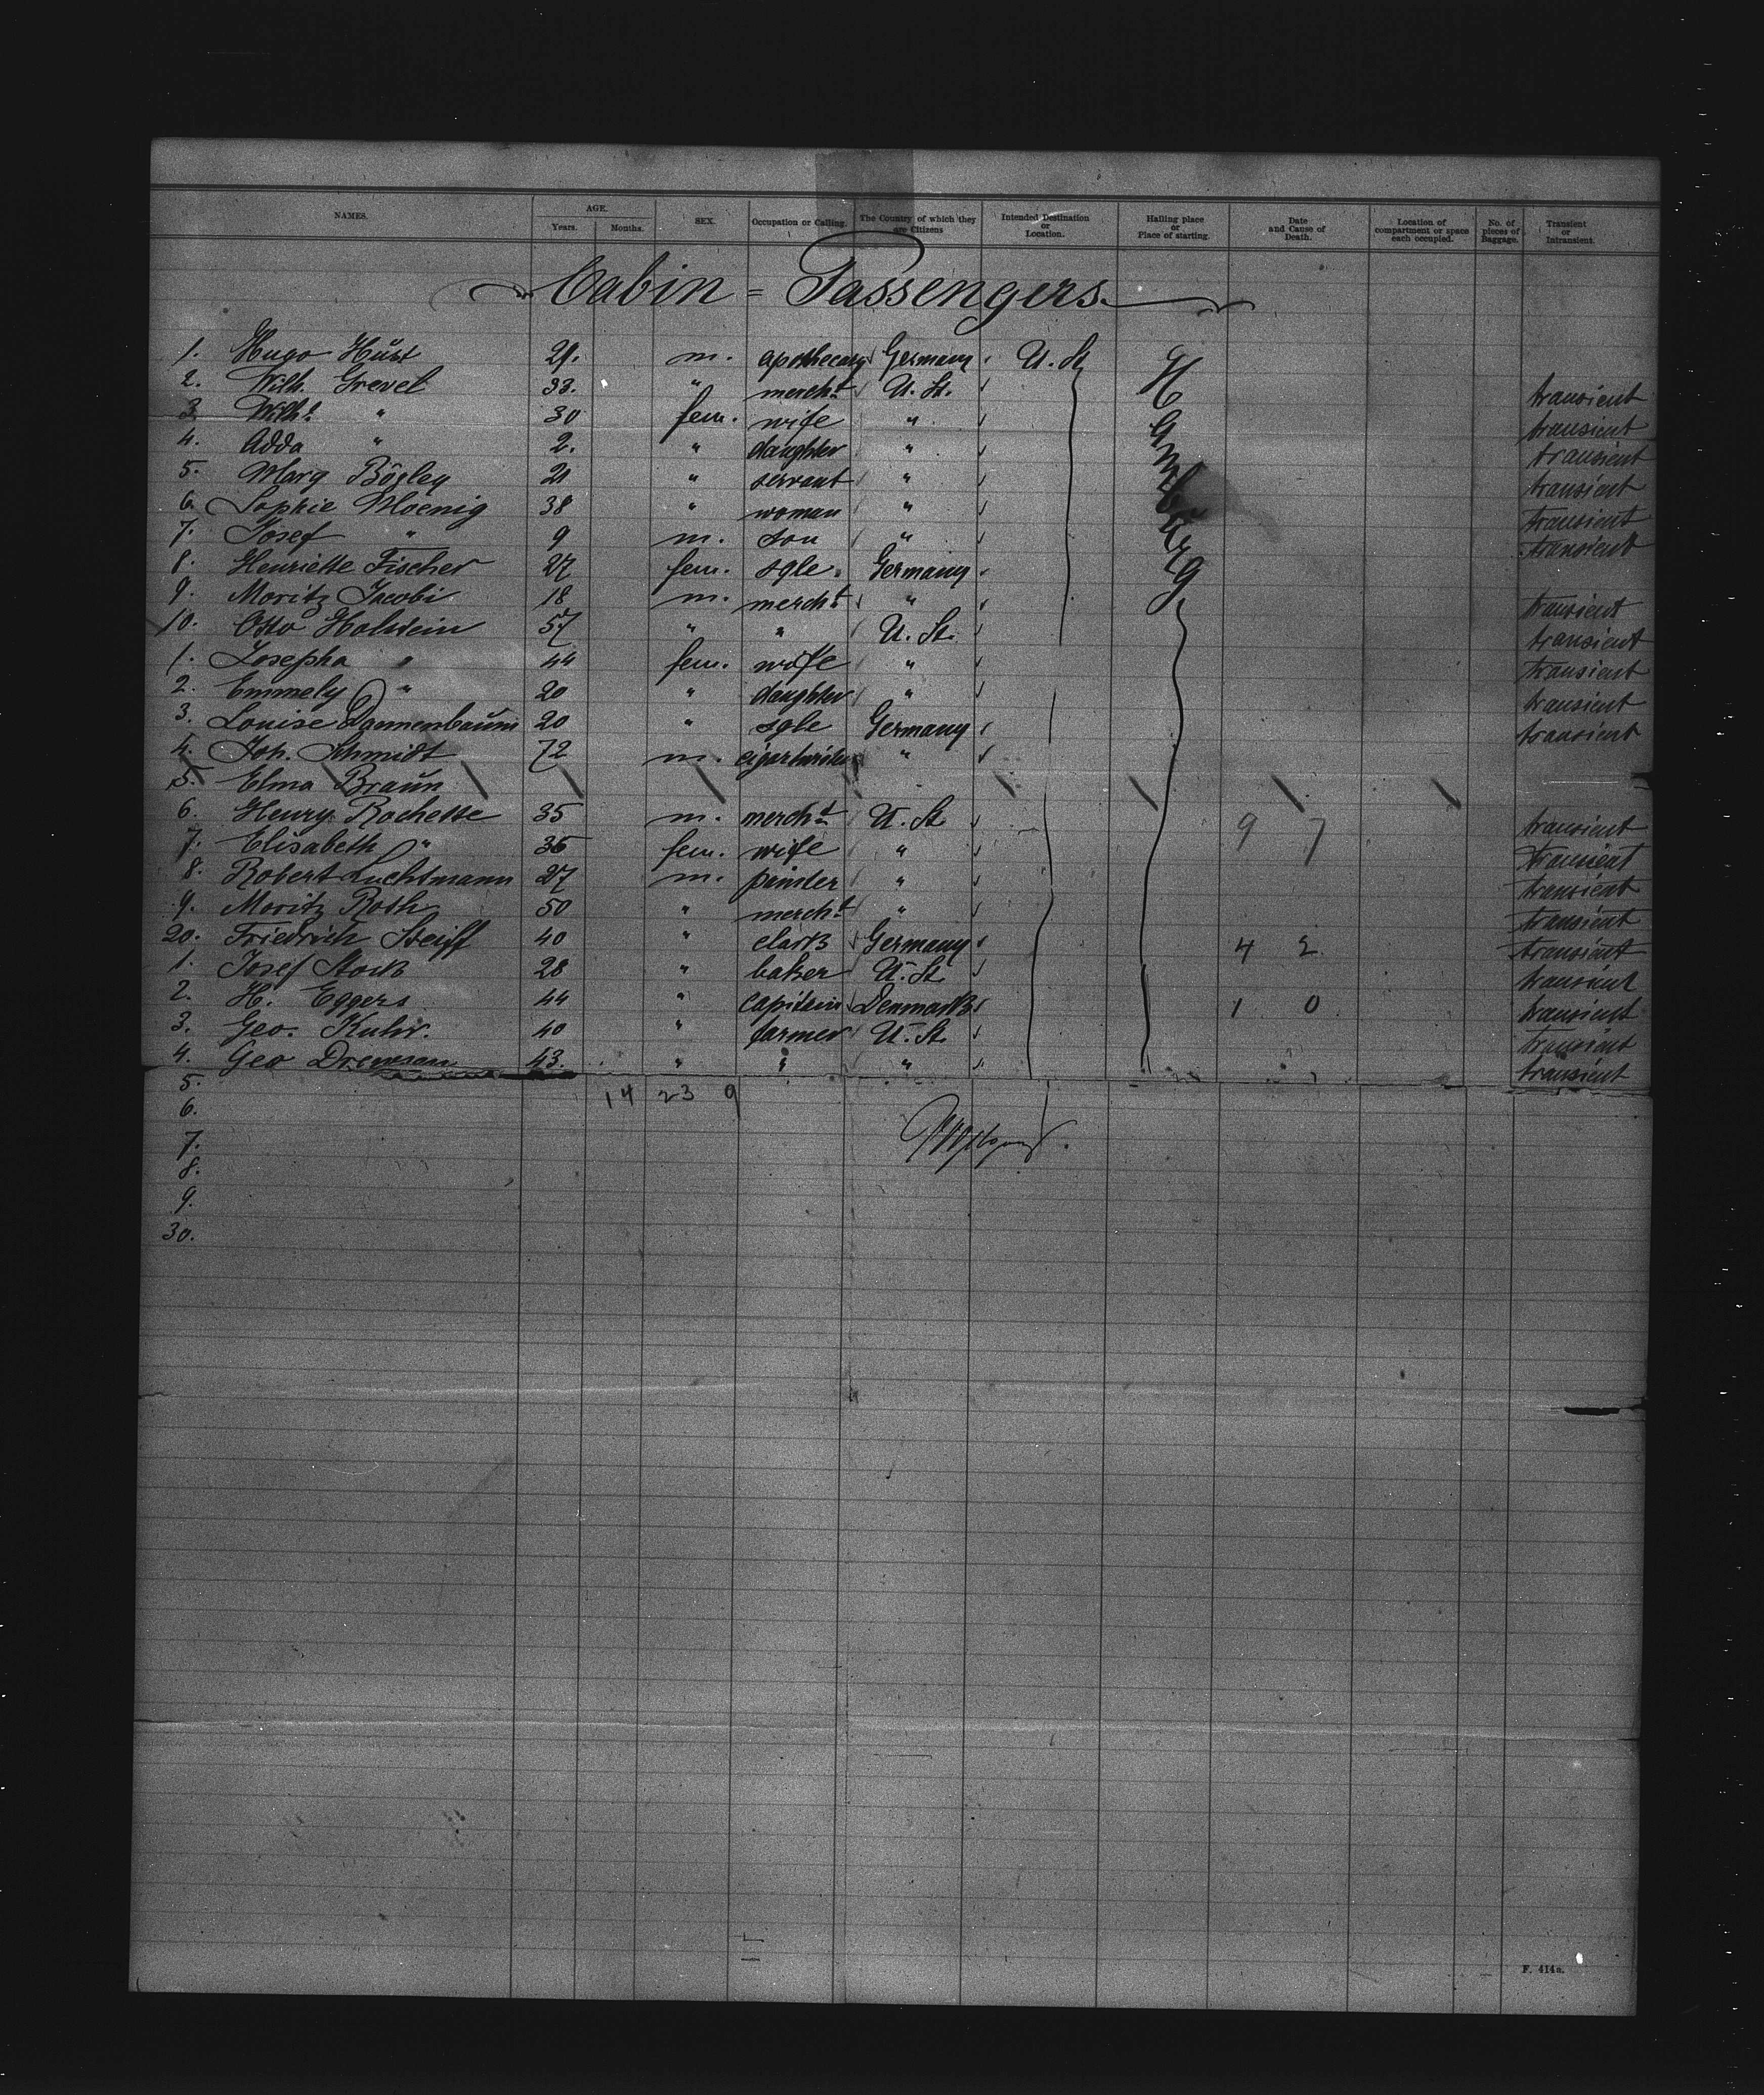 NAMES. AGE. Years. Months. SEX. Occupation or Calling. The Country of which they are Citizens Intended Destination or Location. Hailing place or Place of starting. Date and Cause of Death. Location of compartment or space each occupied. No. of pieces of Baggage. Transient or Intransient.
Cabin = Passengers.
1. Hugo Hüst 21. m. apothecary Germany U. St. Hamburg
2. Wilh. Grevel 33. " mercht U. St. transient
3. Wilhe " 30 fem. wife " transient
4. Adda " 2. " daughter " transient
5. Marg Bögley 21 " servant " transient
6. Sophie Hoenig 38 " woman " transient
7. Josef " 9 m. son " transient
8. Henriette Fischer 27 fem. sgle. Germany
9. Moritz Jacobi 18 m. mercht " transient
10. Otto Holstein 57 " " U. St. transient
1. Josepha " 44 fem. wife " transient
2. Emmely " 20 " daughter " transient
3. Louise Dannenbaum 20 " sgle Germany transient
4. Joh. Schmidt 72 m. "
5. Elma Braun
6. Henry Rachette 35 m. mercht U. St. 9 7 transient
7. Elisabeth " 36 fem. wife " transient
8. Robert Luchtmann 27 m. painter " transient
9. Moritz Roth 50 " mercht " transient
20. Friedrich Steiff 40 " clark Germany 4 2 transient
1. Josef Stork 28 " baker U. St. transient
2. H. Eggers 44 " capitain Denmark 1 0 transient
3. Geo. Kuhr. 40 " farmer U. St. transient
4. Geo Drewsen 43. " " " transient
5. 14 23 9
6.
7.
8.
9.
30.
F. 414a.